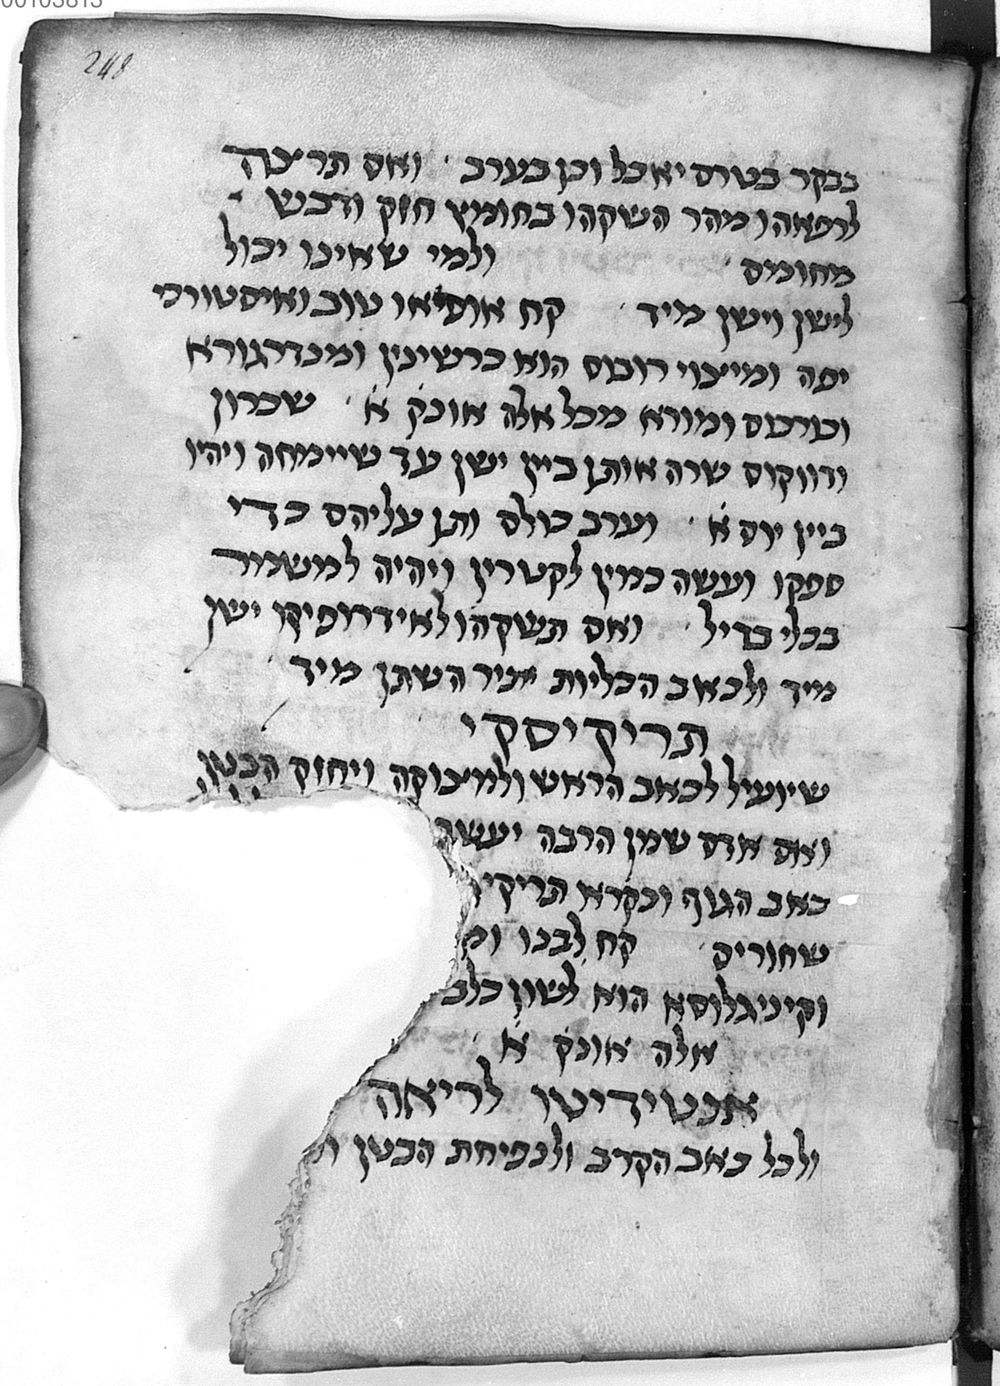 00103813
248
בבקר בטרם יאכל וכן בערב ואם תרצה
לרפאהו מהר השקהו בחומץ חזק ודבש
מחומם ולמי שאינו יכול
לישן וישן מיד קח אופיאו טוב ואיסטורכי
יפה ומיצוי רובוס הוא כרשינין ומנדרגורא
וכורכום ומורא מכל אלה אונק א שכרון
ודווקוס שרה אותן ביין ישן עד שיימחה ויהיו
ביין יום א וערב כולם ותן עליהם כדי
ספקו ועשה כמין לקטרין ויהיה למשמר
בכלי בדיל ואם תשקהו לאידרופיקו ישן
מיד ולכאב הכליות יגיר השתן מיד
תריקיסקי
שיועיל לכאב הראש ולמצוקה ויחזק הבטן
ואם אדם שמן הרבה יעשה
כאב הגוף ונקרא תריקי
שחורים קח לבנו
וקיניגלוסא הוא לשון כלב
אלה אונק א
אנטידיטו לריאה
ולכל כאב הקרב ולנפיחת הבטן